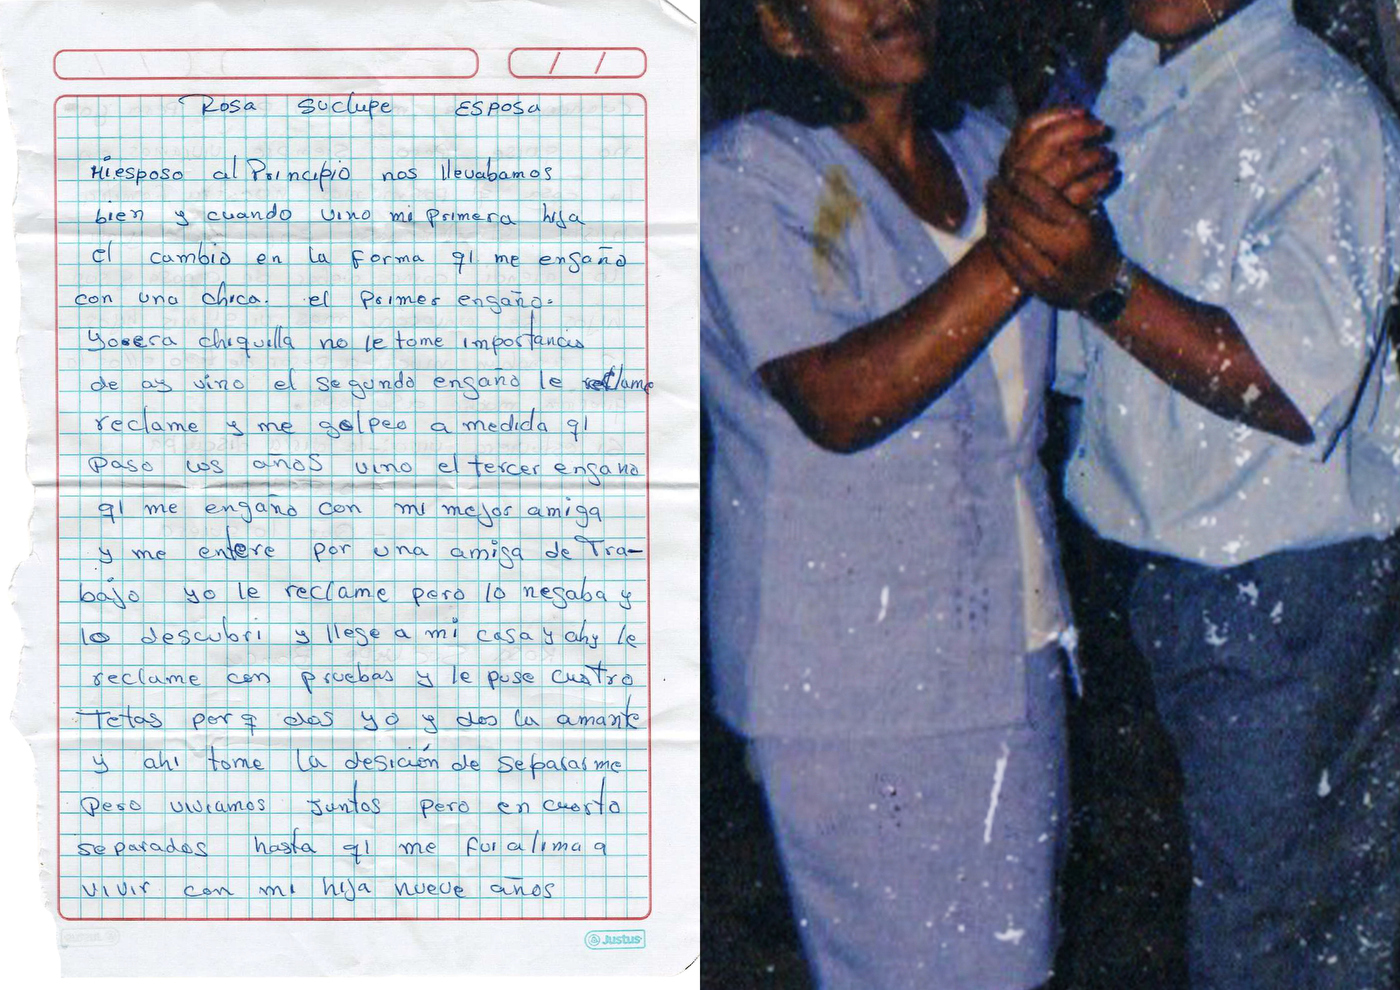 Rosa Suclupe ESPOSA
Mi esposo al Principio nos llevabamos
bien y cuando vino mi primera hija
el cambio en la forma qi me engaño
con una chica. el primer engaño.
yo era chiquilla no le tome importancia
de ay vino el segundo engaño le reclame
reclame y me golpeo a medida qi
paso los años vino el tercer engaño
qi me engaño con mi mejor amiga
y me entere por una amiga de Tra-
bajo yo le reclame pero lo negaba y
lo descubri y llege a mi casa y ahy le
reclame con pruebas y le puse cuatro
Tetas porq dos yo y dos la amante
y ahi tome la desición de separarme
Pero viviamos juntos pero en cuarto
separados hasta qi me fui a lima a
vivir con mi hija nueve años
Justus